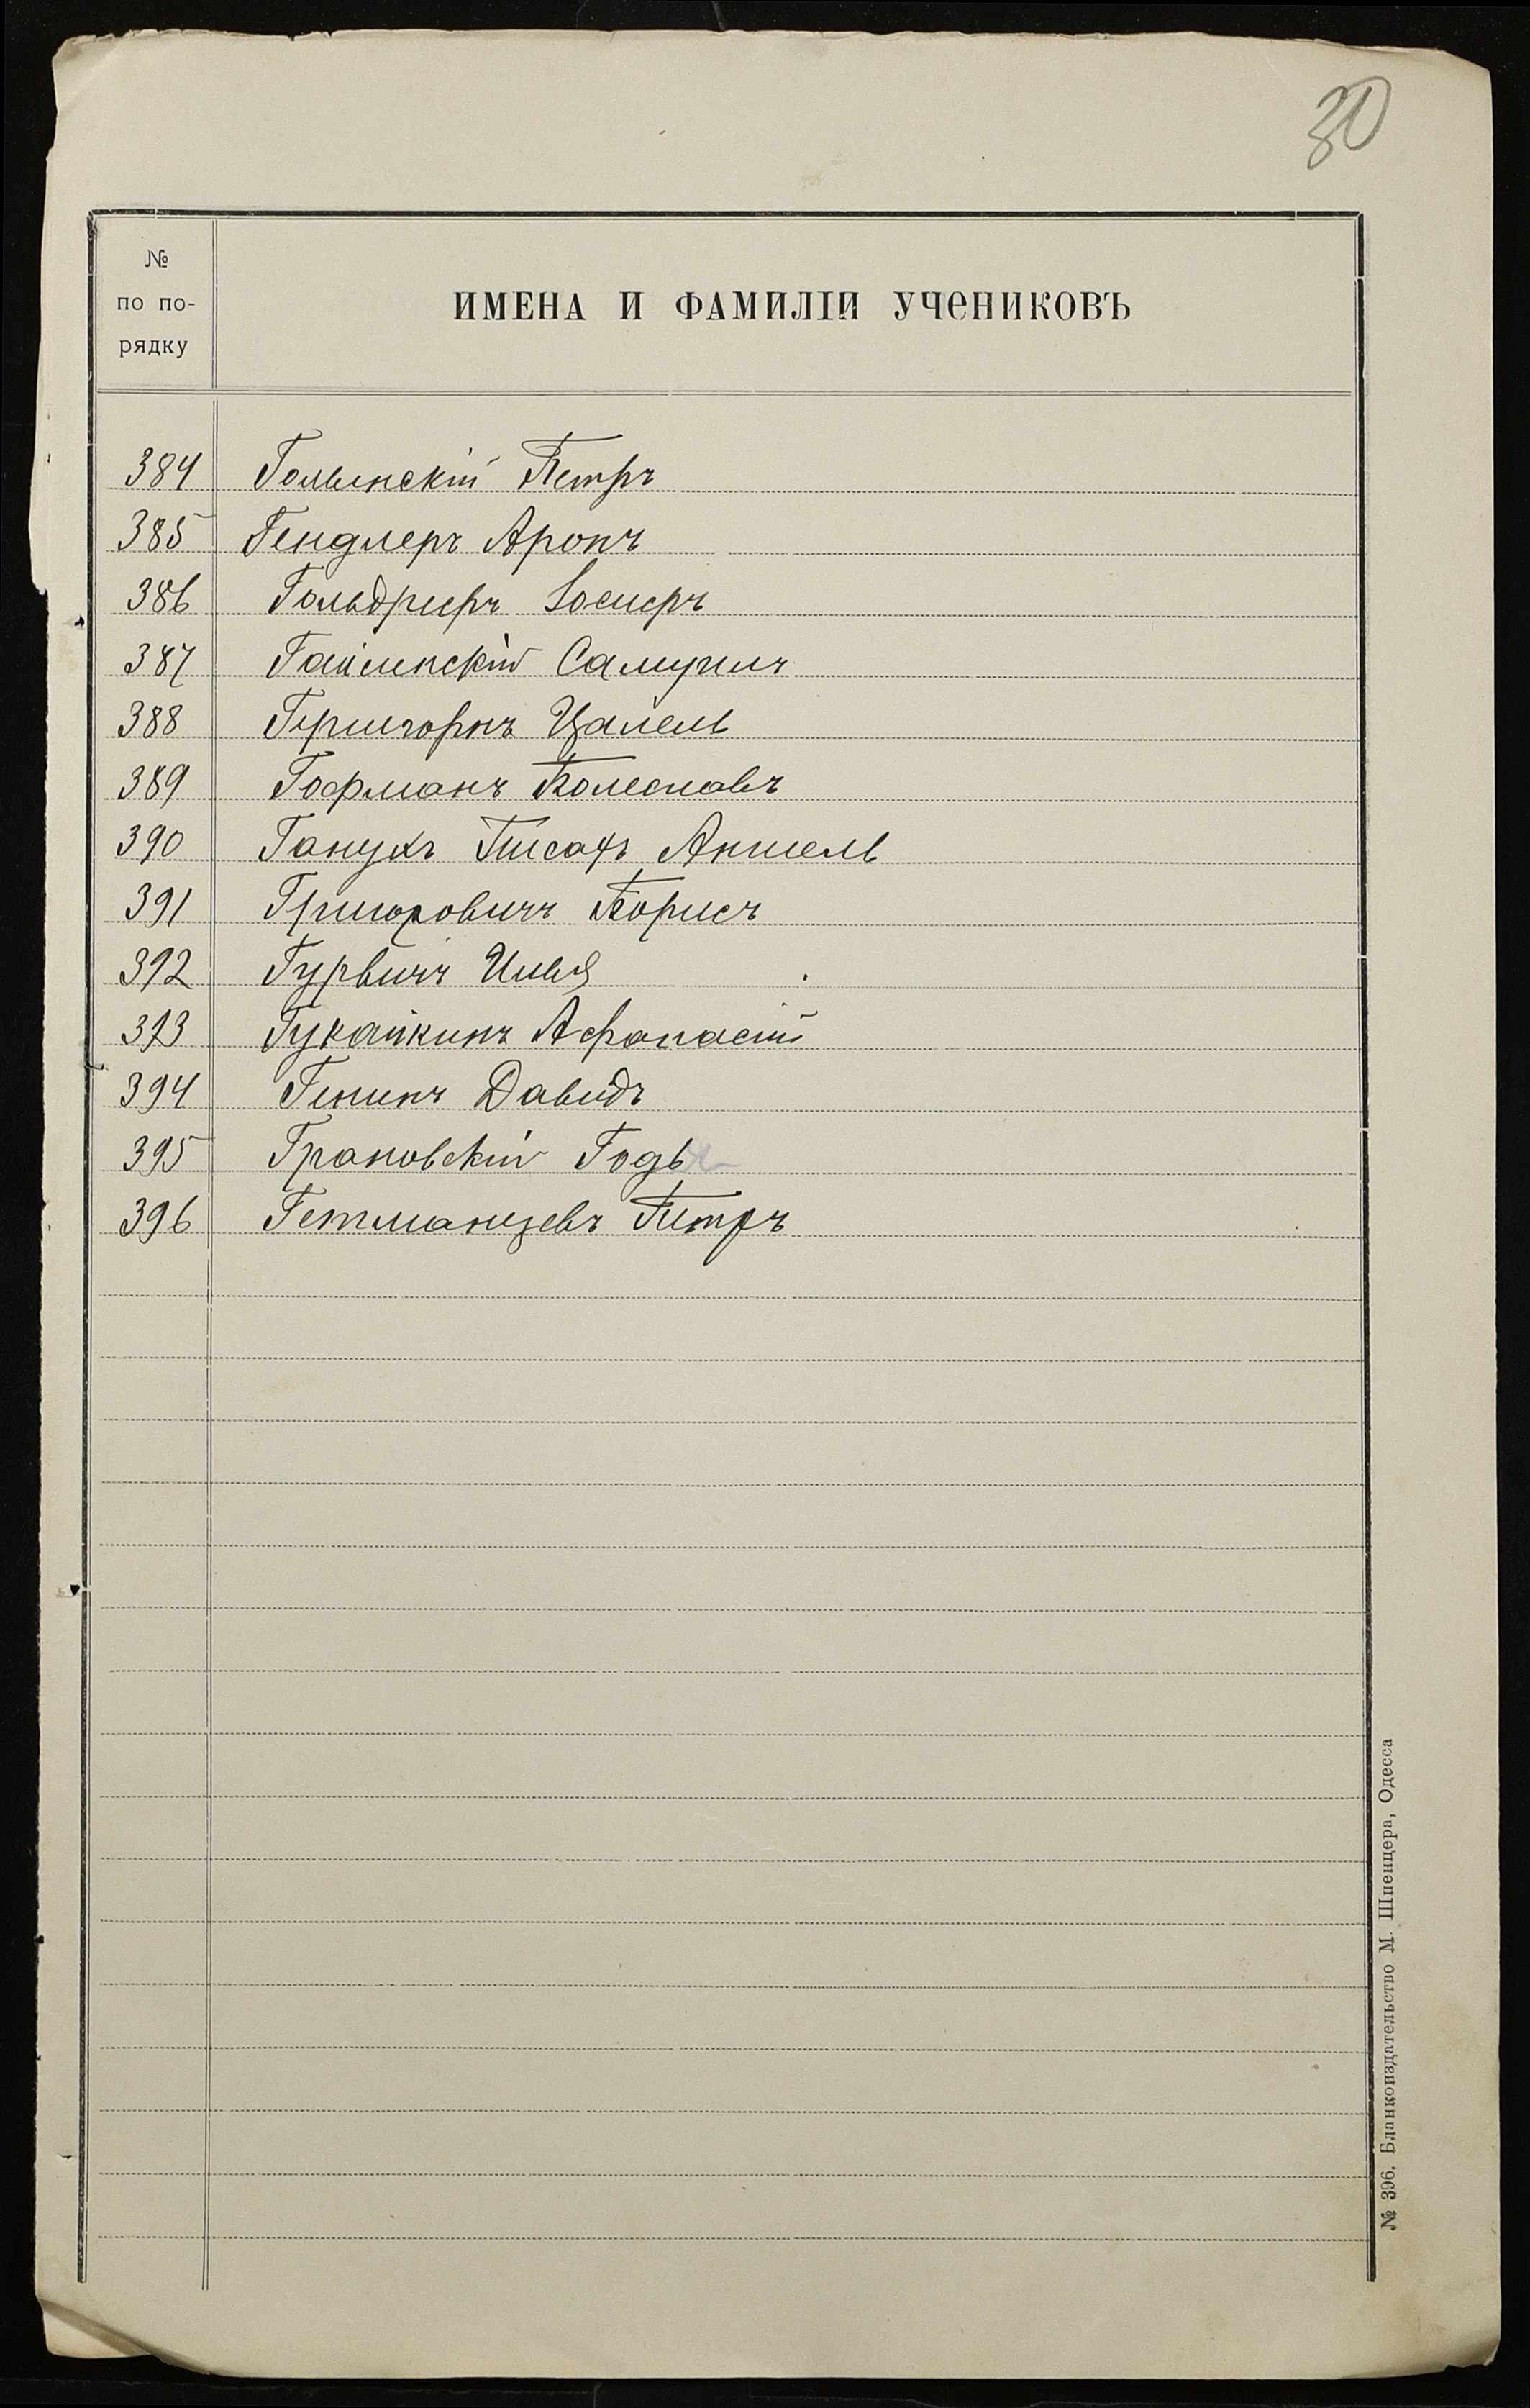 30
№
по по-
рядку
ИМЕНА И ФАМИЛІИ УЧЕНИКОВЪ
384 Голынскій Петръ
385 Гендлеръ Аронъ
386 Іосифъ
387 Самуилъ
388 Гершгорнъ
389 Гофманъ Болеславъ
390 Ганухъ Аншель
391 Григоровичъ Борисъ
392 Гурвичъ
393 Гукайкинъ Афанасій
394 Генинъ Давидъ
395 Грановскій Годь
396 Гетманцевъ Петръ
№ 396. Бланкоиздательство М. Шпенцера, Одесса